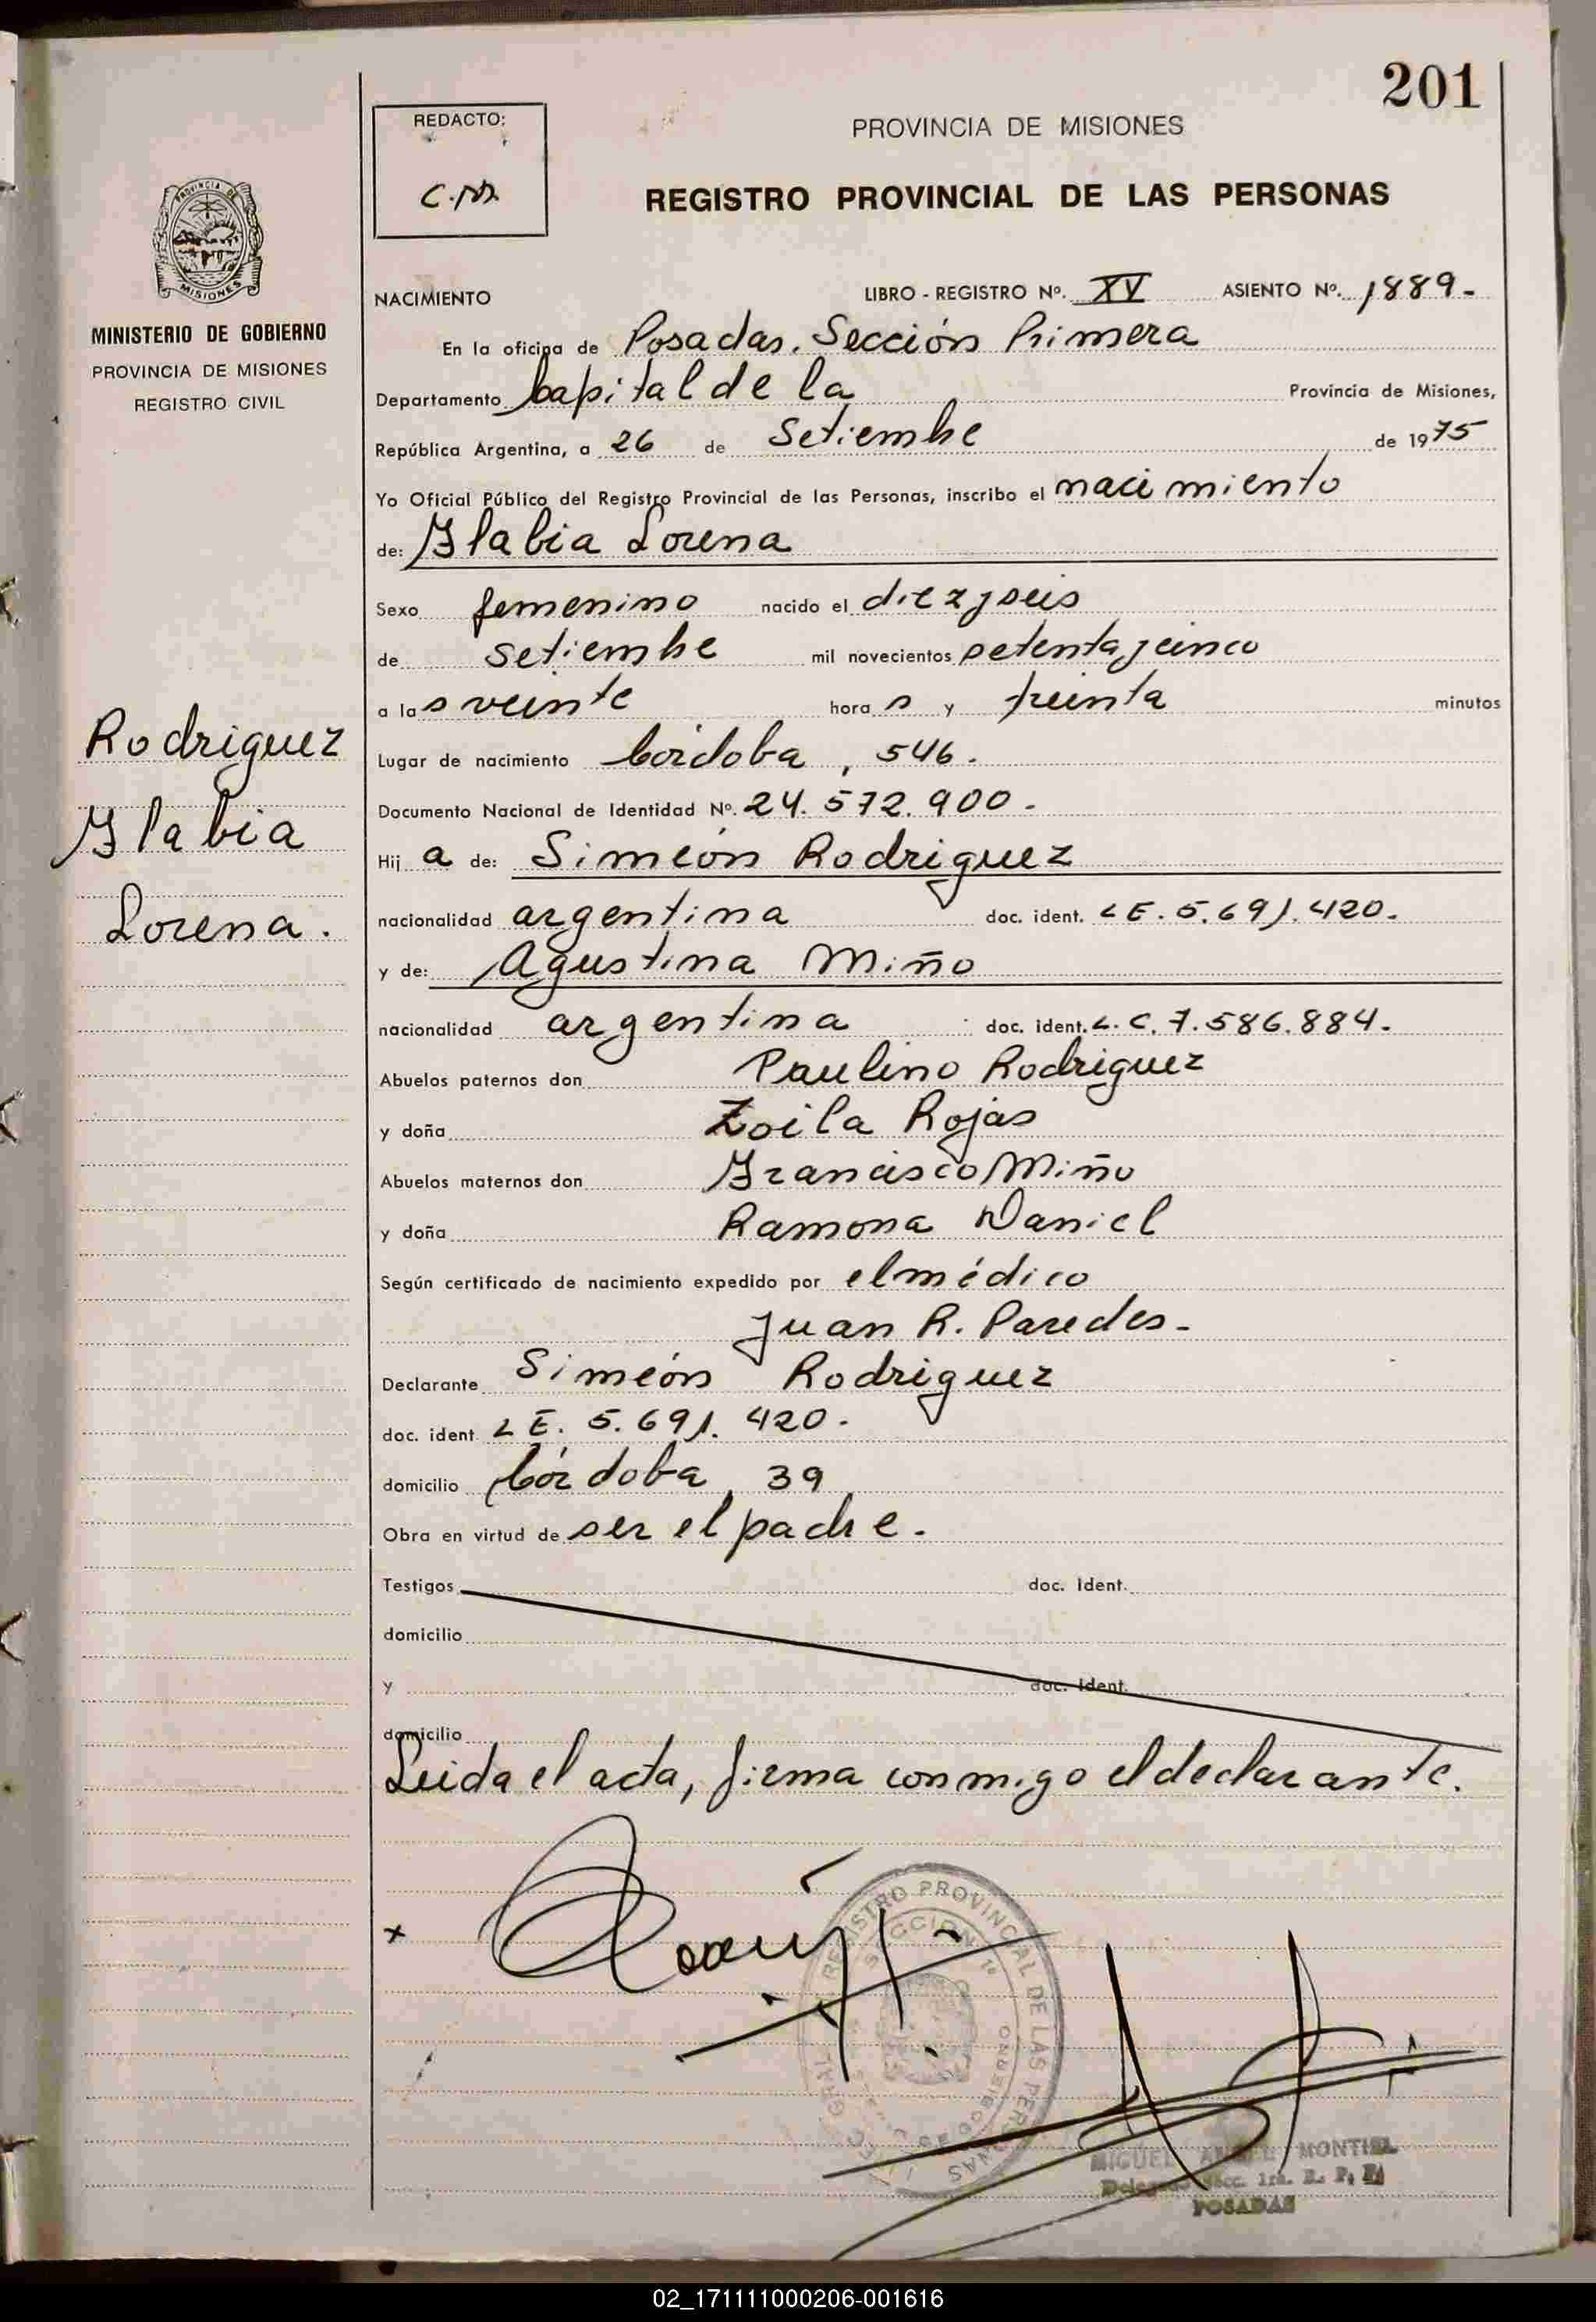 201
REDACTO:
C.M.
PROVINCIA DE MISIONES
REGISTRO PROVINCIAL DE LAS PERSONAS
PROVINCIA DE
MISIONES
MINISTERIO DE GOBIERNO
PROVINCIA DE MISIONES
REGISTRO CIVIL
Rodriguez
Flabia
Lorena.
NACIMIENTO LIBRO - REGISTRO Nº. XV ASIENTO Nº. 1889-
En la oficina de Posadas. Sección Primera
Departamento Capital de la Provincia de Misiones,
República Argentina, a 26 de Setiembre de 1975
Yo Oficial Público del Registro Provincial de las Personas, inscribo el nacimiento
de: Flabia Lorena
Sexo femenino nacido el diez y seis
de setiembre mil novecientos setenta y cinco
a las veinte horas y treinta minutos
Lugar de nacimiento Córdoba, 546.
Documento Nacional de Identidad Nº. 24.572.900-
Hija de: Simeón Rodriguez
nacionalidad argentina doc. ident. LE. 5.691.420.
y de: Agustina Miño
nacionalidad argentina doc. ident. L.C. 7.586.884.
Abuelos paternos don Paulino Rodriguez
y doña Zoila Rojas
Abuelos maternos don Francisco Miño
y doña Ramona Daniel
Según certificado de nacimiento expedido por el médico
Juan R. Paredes-
Declarante Simeón Rodriguez
doc. ident LE. 5.691.420-
domicilio Córdoba, 39
Obra en virtud de ser el padre.
Testigos doc. Ident.
domicilio
y doc. Ident.
domicilio
Leida el acta, firma conmigo el declarante.
x
REGISTRO PROVINCIAL DE LAS PERSONAS
SECCION 1ª
MIGUEL ANGEL MONTIEL
Delegado Secc. 1ra. R. P. P.
POSADAS
02_171111000206-001616